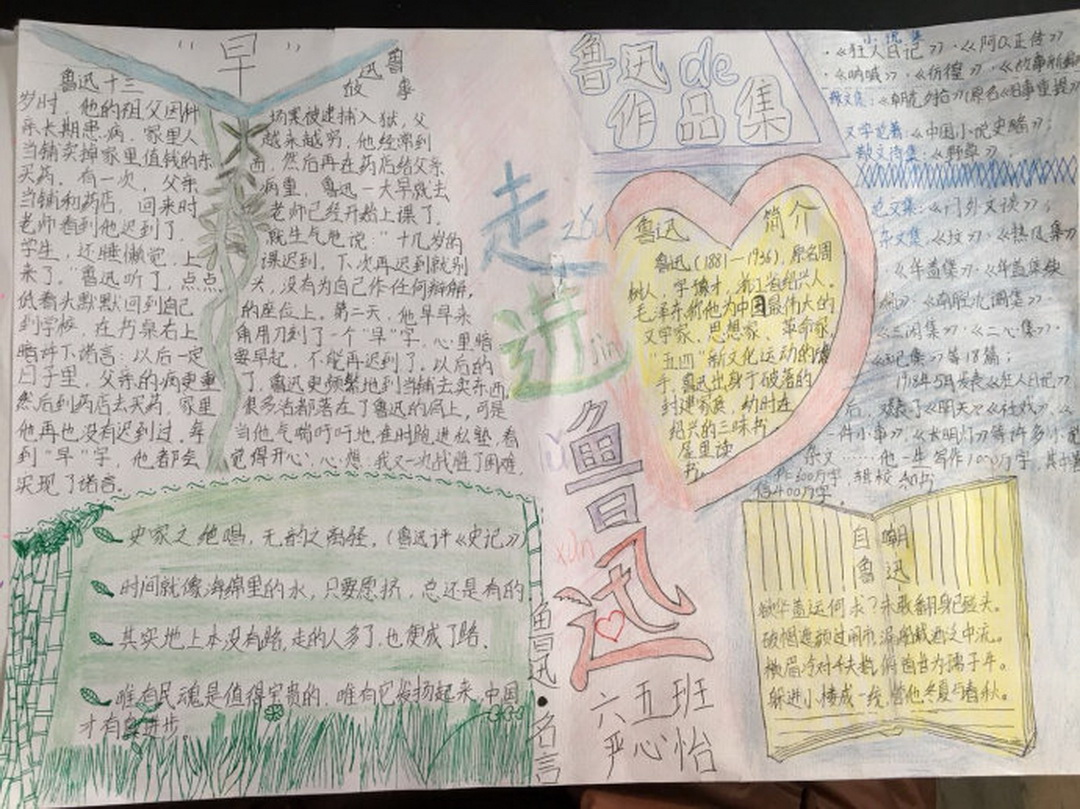 "早"
鲁迅故事
鲁迅十三
岁时，他的祖父因科场案被逮捕入狱，父
亲长期患病，家里人越来越穷，他经常到
当铺卖掉家里值钱的东西，然后再在药店给父亲
买药。有一次，父亲病重，鲁迅一大早就去
当铺和药店，回来时老师已经开始上课了。
老师看到他迟到了，就生气地说："十几岁的
学生，还睡懒觉，上课迟到。下次再迟到就别
来了。"鲁迅听了，点点头，没有为自己作任何辩解，
低着头默默回到自己的座位上。第二天，他早早来
到学校，在书桌右上角用刀刻了一个"早"字，心里暗
暗许下诺言：以后一定要早起，不能再迟到了。以后的
日子里，父亲的病更重了，鲁迅更频繁地到当铺去卖东西，
然后到药店去买药，家里很多活都落在了鲁迅的肩上，可是
他再也没有迟到过。每当他气喘吁吁地准时跑进私塾，看
到"早"字，他都会觉得开心，心想：我又一次战胜了困难，
实现了诺言。
史家之绝唱，无韵之离骚。(鲁迅评《史记》)
时间就像海绵里的水，只要愿挤，总还是有的
其实地上本没有路，走的人多了，也便成了路。
唯有民魂是值得宝贵的，唯有它发扬起来，中国
才有真进步。
鲁迅名言
走 zǒu
进 jìn
鲁 lǔ
迅 xùn
六五班
严心怡
鲁迅de
作品集
小说集
·《狂人日记》·《阿Q正传》
·《呐喊》·《彷徨》·《故事新编》
散文集：《朝花夕拾》(原名《旧事重提》)
文学论著：《中国小说史略》；
散文诗集：《野草》；
论文集：《门外文谈》；
杂文集：《坟》·《热风集》
·《华盖集》·《华盖集续
编》·《南腔北调集》·
《三闲集》·《二心集》·
《而已集》等18篇；
1918年5月发表《狂人日记》
后，又发表了《明天》《社戏》、《
一件小事》、《长明灯》等许多小说
杂文……他一生写作1000万字，其中著
作500万字，辑校和书
信400万字
鲁迅 简介
鲁迅(1881—1936)，原名周
树人，字豫才，浙江省绍兴人。
毛泽东称他为中国最伟大的
文学家、思想家、革命家，
"五四"新文化运动的旗
手。鲁迅出身于破落的
封建家庭，幼时在
绍兴的三味书
屋里读
书。
自嘲
鲁迅
欲华盖运何求？未敢翻身已碰头。
破帽遮颜过闹市，漏船载酒泛中流。
横眉冷对千夫指，俯首甘为孺子牛。
躲进小楼成一统，管他冬夏与春秋。